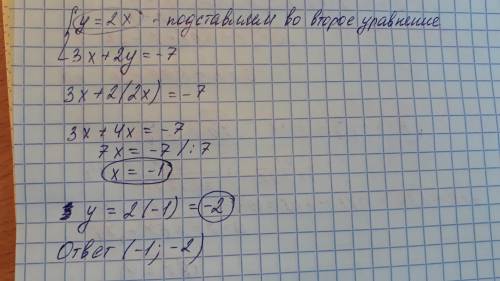 {y = 2x - подставляем во второе уравнение
3x + 2y = -7
3x + 2(2x) = -7
3x + 4x = -7
7x = -7 /:7
x = -1
y = 2(-1) = -2
Ответ (-1; -2)